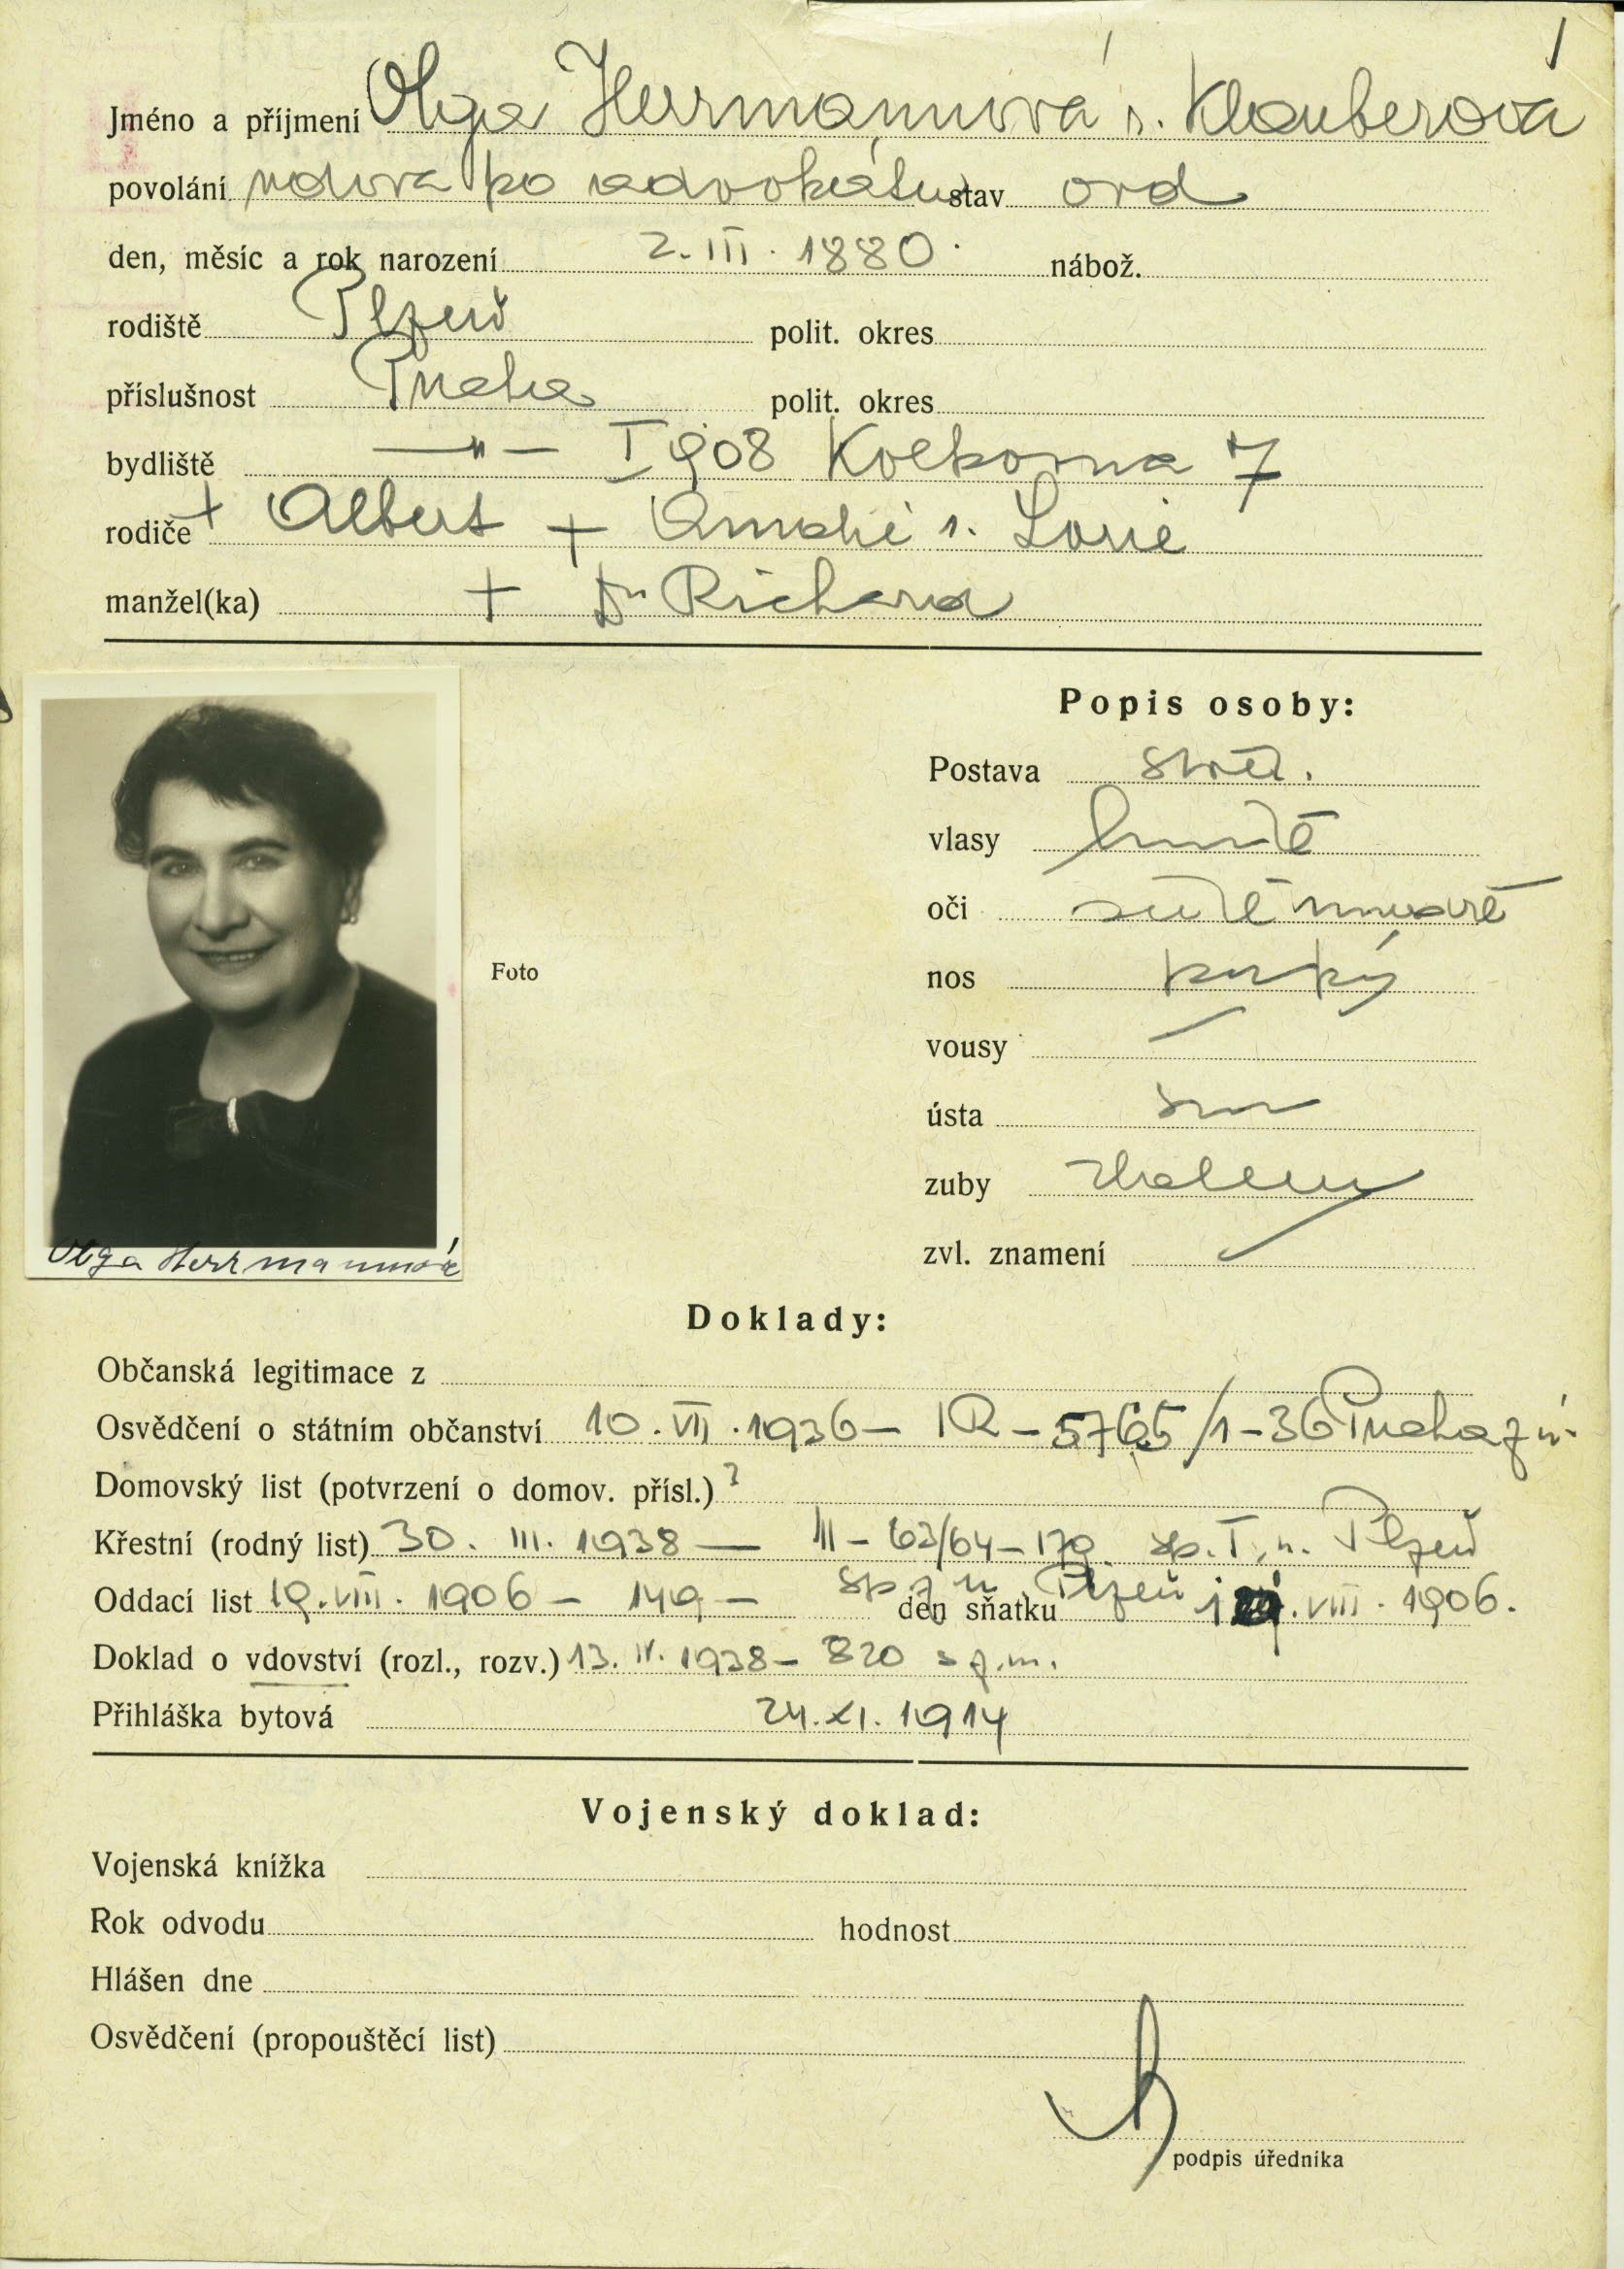 1
Jméno a příjmení Olga Herrmannová r. Klauberová
povolání vdova po advokátu stav ovd
den, měsíc a rok narození 2. III. 1880. nábož.
rodiště Plzeň polit. okres
příslušnost Praha polit. okres
bydliště —"— I 908 Kolkovna 7
rodiče + Albert + Amalie r.
manžel(ka) + Dr Richard
Popis osoby:
Postava střed.
vlasy hnědé
oči
nos
vousy —
ústa
zuby
zvl. znamení
Foto
Olga Herrmannová
Doklady:
Občanská legitimace z
Osvědčení o státním občanství 10. VII. 1936 — IR — 5765/1-36 Praha z ú.
Domovský list (potvrzení o domov. přísl.) ?
Křestní (rodný list) 30. III. 1938 — III - 63/64 - 179. Plzeň
Oddací list 19. VIII. 1906 — 149 — Plzeň den sňatku VIII. 1906.
Doklad o vdovství (rozl., rozv.) 13. IV. 1938 — 820
Přihláška bytová 24. XI. 1914
Vojenský doklad:
Vojenská knížka
Rok odvodu hodnost
Hlášen dne
Osvědčení (propouštěcí list)
podpis úředníka